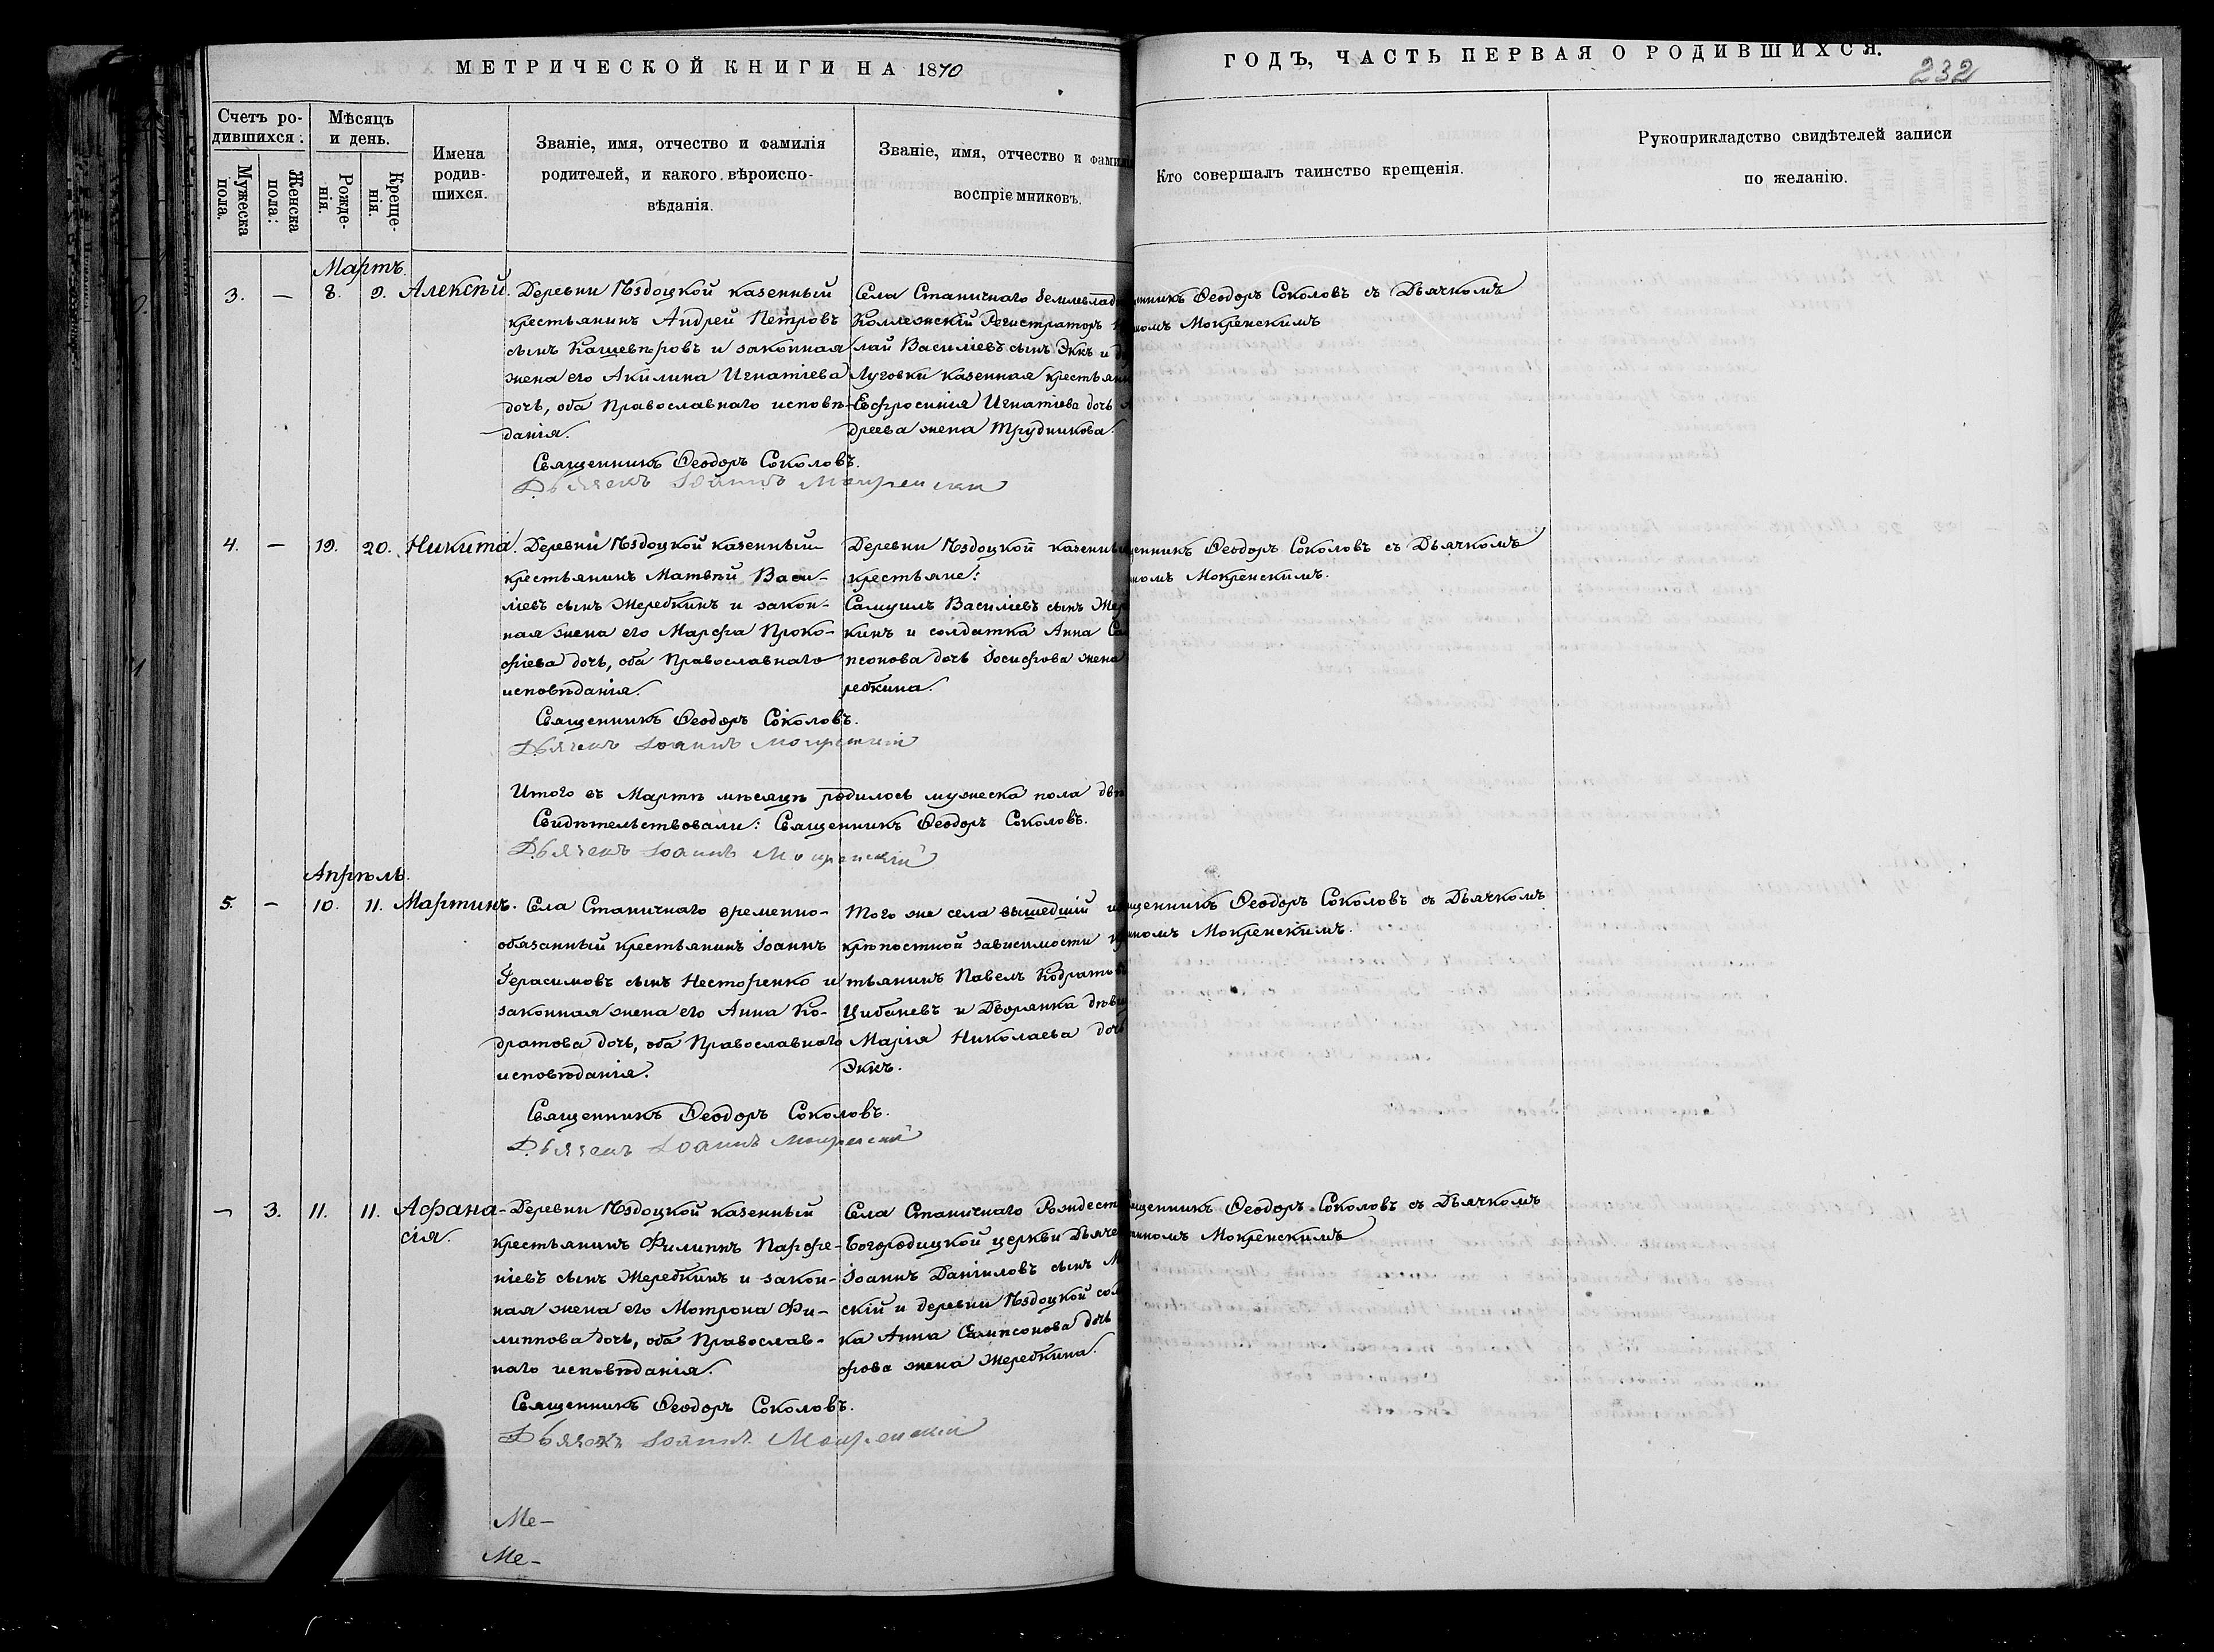 МЕТРИЧЕСКОЙ КНИГИ НА 1870
ГОДЪ, ЧАСТЬ ПЕРВАЯ О РОДИВШИХСЯ.
232
Счетъ ро-
дившихся.
Мужеска
пола.
Женска
пола.
Мѣсяцъ
и день.
Рожде-
нія.
Креще-
нія.
Имена
родив-
шихся.
Званіе, имя, отчество и фамилія
родителей, и какого вѣроиспо-
вѣданія.
Званіе, имя, отчество и фамилія
воспріемниковъ.
Кто совершалъ таинство крещенія.
Рукоприкладство свидѣтелей записи
по желанію.
Мартъ.
3. — 8. 9. Алексѣй.
Деревни Ѣздоцкой казенный
крестьянинъ Андрей Петровъ
сынъ Кащевѣровъ и законная
жена его Акилина Игнатіева
дочь, оба Православнаго исповѣ-
данія.
Священникъ Ѳеодоръ Соколовъ.
Дьячекъ Іоаннъ Мокренскій
Села Станичнаго землевлад
Коллежскій Регистраторъ
лай Василіевъ сынъ Эккъ и
Луговки казенная крестьян
Евфросинія Игнатіева дочь
дреева жена Трудникова.
нникъ Ѳеодоръ Соколовъ съ Дьячкомъ
номъ Мокренскимъ
4. — 19. 20. Никита.
Деревни Ѣздоцкой казенный
крестьянинъ Матвѣй Васи-
ліевъ сынъ Жеребкинъ и закон-
ная жена его Марфа Проко-
фіева дочь, оба Православнаго
исповѣданія.
Священникъ Ѳеодоръ Соколовъ.
Дьячекъ Іоаннъ Мокренскій
Деревни Ѣздоцкой казенны
крестьяне:
Самуилъ Василіевъ сынъ Же
кинъ и солдатка Анна Са
псонова дочь Іосифова жена
ребкина.
щенникъ Ѳеодоръ Соколовъ съ Дьячкомъ
номъ Мокренскимъ.
Итого въ Мартѣ мѣсяцѣ родилось мужеска пола дв
Свидѣтельствовали: Священникъ Ѳеодоръ Соколовъ.
Дьячекъ Іоаннъ Мокренскій
Апрѣль.
5. — 10. 11. Мартинъ.
Села Станичнаго временно-
обязанный крестьянинъ Іоаннъ
Герасимовъ сынъ Несторенко и
законная жена его Анна Ко-
дратова дочь, оба Православнаго
исповѣданія.
Священникъ Ѳеодоръ Соколовъ.
Дьячекъ Іоаннъ Мокренскій
Того же села вышедшій и
крѣпостной зависимости
тьянинъ Павелъ Кодратов
Цибаневъ и Дворянка дѣв
Марія Николаева доч
Эккъ.
щенникъ Ѳеодоръ Соколовъ съ Дьячкомъ
номъ Мокренскимъ.
— 3. 11. 11. Афана-
сія.
Деревни Ѣздоцкой казенный
крестьянинъ Филиппъ Парфе-
ніевъ сынъ Жеребкинъ и закон-
ная жена его Мотрона Фи-
липпова дочь, оба Православ-
наго исповѣданія.
Священникъ Ѳеодоръ Соколовъ.
Дьячекъ Іоаннъ Мокренскій
Села Станичнаго Рождест
Богородицкой церкви Дьяче
Іоаннъ Даніиловъ сынъ М
скій и деревни Ѣздоцкой сол
ка Анна Сампсонова дочь
фова жена Жеребкина.
щенникъ Ѳеодоръ Соколовъ съ Дьячкомъ
нномъ Мокренскимъ
Ме-
Ме-